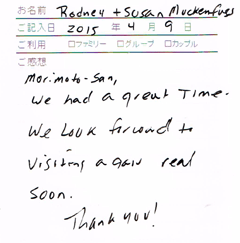 お名前 Rodney + Susan Muckenfuss
ご記入日 2015 年 4 月 9 日
ご利用 □ファミリー □グループ □カップル
ご感想
Morimoto-San,
We had a great Time.
We Look forward to
Visiting again real
Soon.
Thank you!